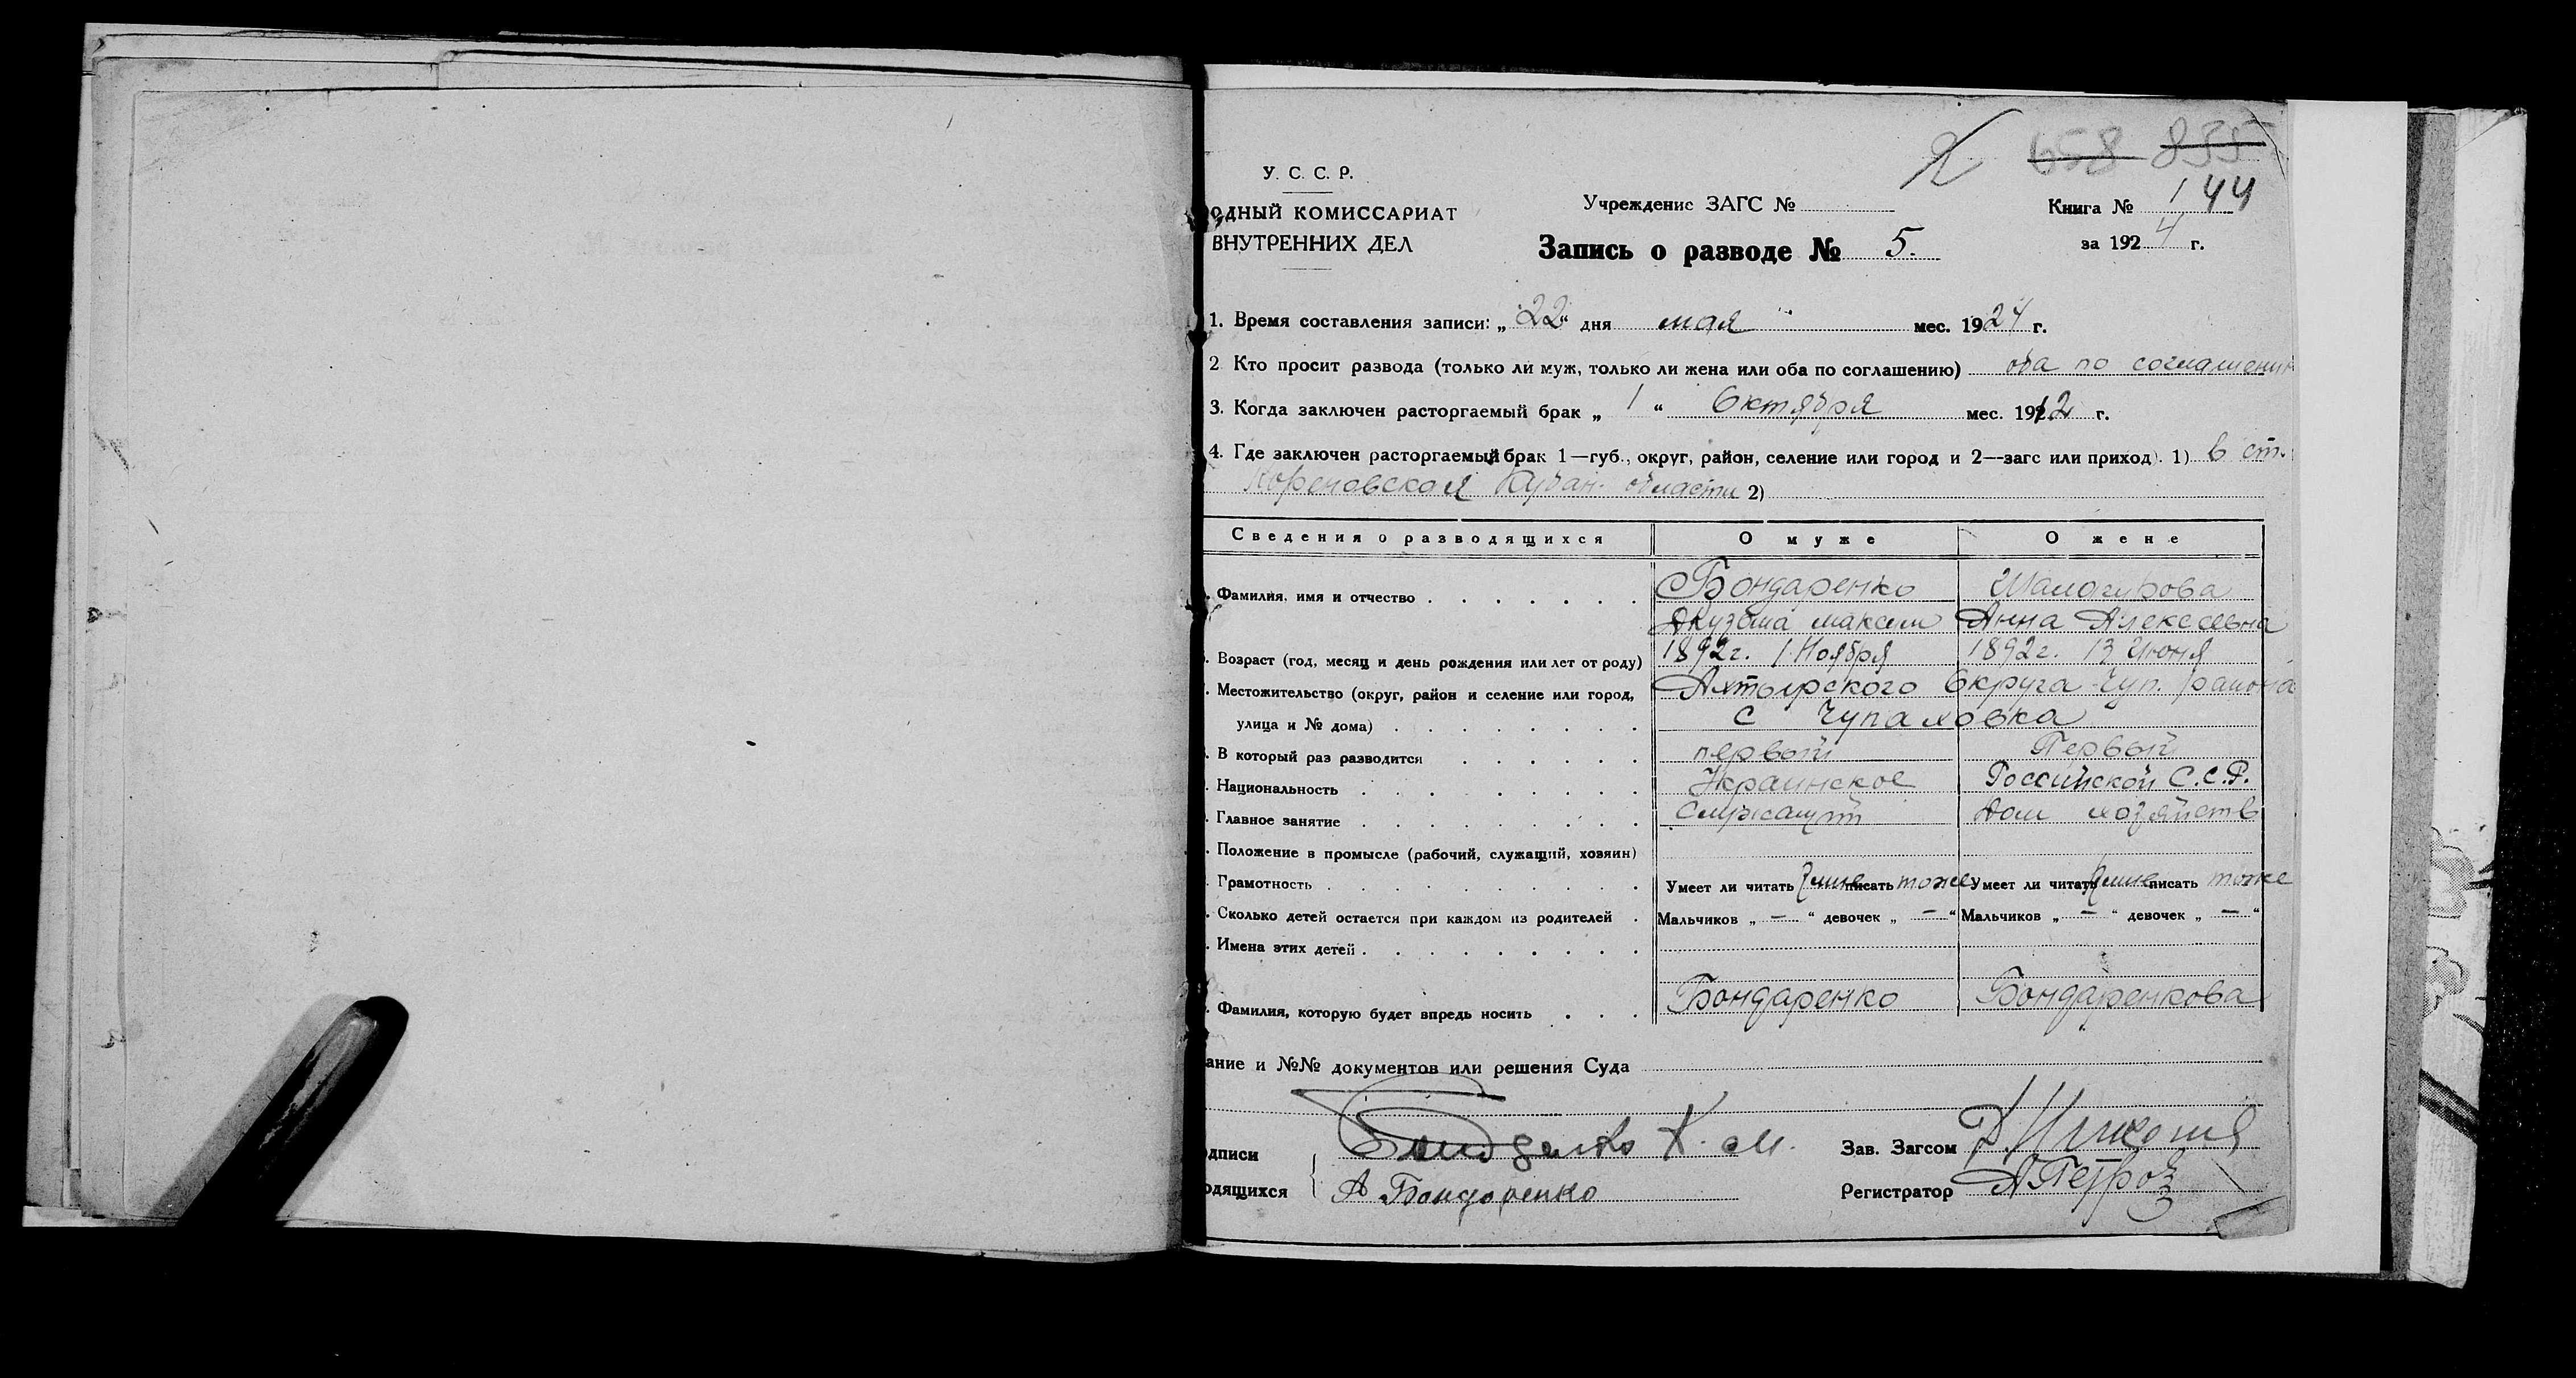 658 855
У. С. С. Р.
ОДНЫЙ КОМИССАРИАТ
ВНУТРЕННИХ ДЕЛ
Учреждение ЗАГС №
Книга № 144
за 1924 г.
Запись о разводе № 5.
1. Время составления записи: „22“ дня мая мес. 1924 г.
2 Кто просит развода (только ли муж, только ли жена или оба по соглашению) оба по соглашению
3. Когда заключен расторгаемый брак „ 1 “ Октября мес. 1912 г.
4. Где заключен расторгаемый брак 1—губ., округ, район, селение или город и 2—загс или приход). 1) в ст.
Кореновской Кубан. области 2)
Сведения о разводящихся О муже О жене
. Фамилия, имя и отчество Бондаренко
Кузьма Максим Анна Алексеевна
. Возраст (год, месяц и день рождения или лет от роду) 1892г. 1 Ноября 1892г. 13 Июня
. Местожительство (округ, район и селение или город, Ахтырского Округа Чуп. района
улица и № дома) с Чупаховка
. В который раз разводится первый Первый
. Национальность Украинское Российской С.С.Р.
. Главное занятие Служащий Дом хозяйств
. Положение в промысле (рабочий, служащий, хозяин)
. Грамотность Умеет ли читать писать тоже Умеет ли читать писать тоже
. Сколько детей остается при каждом из родителей . Мальчиков „ — “ девочек „ — “ Мальчиков „ — “ девочек „ — “
. Имена этих детей
. Фамилия, которую будет впредь носить Бондаренко Бондаренкова
ание и №№ документов или решения Суда
дписи Бондаренко К. М. Зав. Загсом
одящихся А Бондаренко Регистратор АПетров